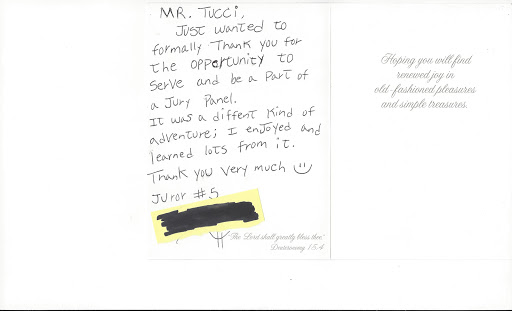 MR. TUCCI,
Just wanted to
formally Thank you for
the opportunity to
serve and be a Part of
a Jury Panel.
It was a diffent kind of
adventure; I enjoyed and
learned lots from it.
Thank you very much
Juror #5
"The Lord shall greatly bless thee."
Deuteronomy 15:4
Hoping you will find
renewed joy in
old-fashioned pleasures
and simple treasures.